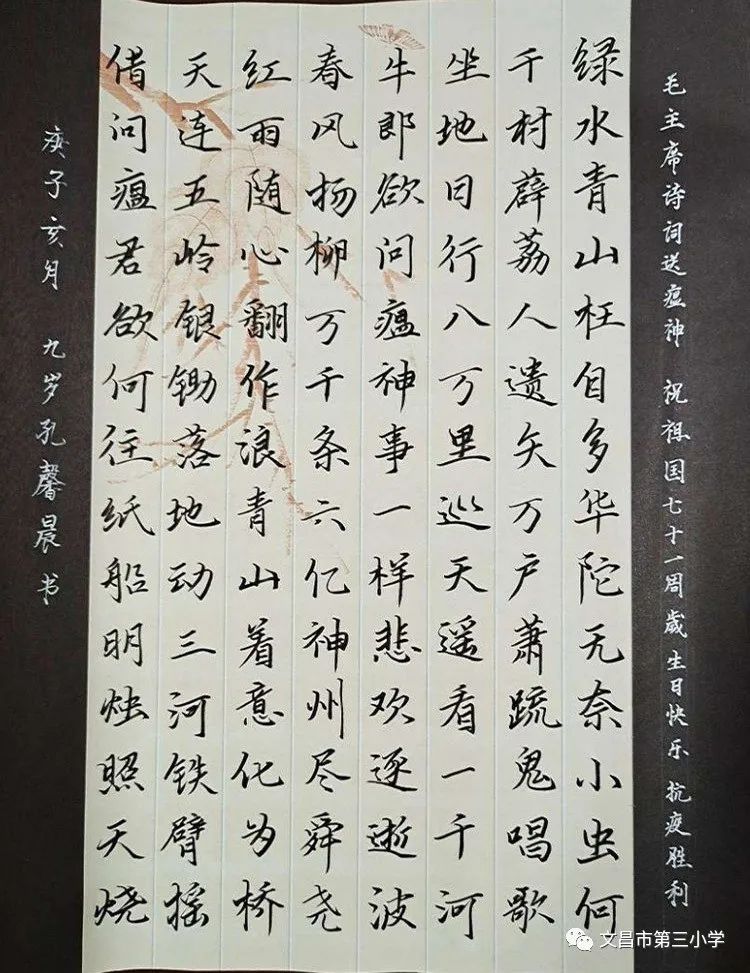 毛主席诗词送瘟神 祝祖国七十一周岁生日快乐 抗疫胜利
绿水青山枉自多华陀无奈小虫何
千村薜荔人遗矢万户萧疏鬼唱歌
坐地日行八万里巡天遥看一千河
牛郎欲问瘟神事一样悲欢逐逝波
春风杨柳万千条六亿神州尽舜尧
红雨随心翻作浪青山着意化为桥
天连五岭银锄落地动三河铁臂摇
借问瘟君欲何往纸船明烛照天烧
庚子亥月 九岁孔馨晨书
文昌市第三小学